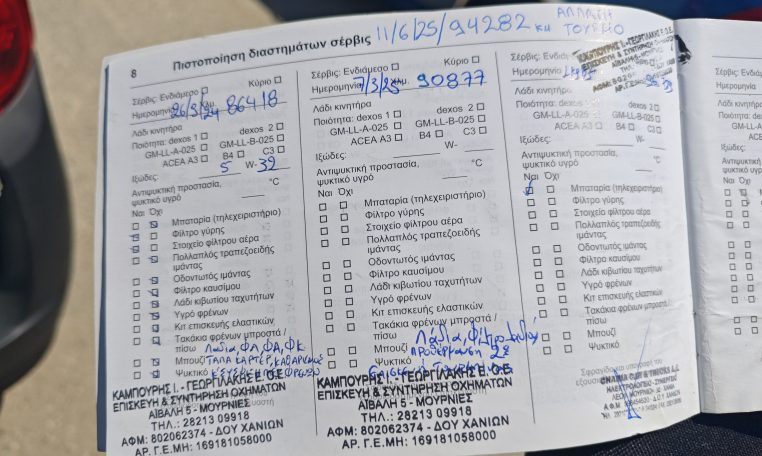 11/6/25/94282 κμ ΑΛΛΑΓΗ
8
Πιστοποίηση διαστημάτων σέρβις
Σέρβις: Ενδιάμεσο Κύριο
Ημερομηνία 26/3/24 χλμ. 86418
Λάδι κινητήρα
Ποιότητα: dexos 1 dexos 2
GM-LL-A-025 GM-LL-B-025
ACEA A3 B4 C3
Ιξώδες: 5 W- 30
Αντιψυκτική προστασία,
ψυκτικό υγρό °C
Ναι Όχι
Μπαταρία (τηλεχειριστήριο)
Φίλτρο γύρης
Στοιχείο φίλτρου αέρα
Πολλαπλός τραπεζοειδής
ιμάντας
Οδοντωτός ιμάντας
Φίλτρο καυσίμου
Λάδι κιβωτίου ταχυτήτων
Υγρό φρένων
Κιτ επισκευής ελαστικών
Τακάκια φρένων μπροστά /
πίσω
Μπουζί
Ψυκτικό
ΚΑΜΠΟΥΡΗΣ Ι. - ΓΕΩΡΓΙΛΑΚΗΣ Ε. Ο.Ε.
ΕΠΙΣΚΕΥΗ & ΣΥΝΤΗΡΗΣΗ ΟΧΗΜΑΤΩΝ
ΑΪΒΑΛΗ 5 - ΜΟΥΡΝΙΕΣ
ΤΗΛ.: 28213 09918
ΑΦΜ: 802062374 - ΔΟΥ ΧΑΝΙΩΝ
ΑΡ. Γ.Ε.ΜΗ: 169181058000
Σέρβις: Ενδιάμεσο Κύριο
Ημερομηνία 7/3/25 χλμ. 90877
Λάδι κινητήρα
Ποιότητα: dexos 1 dexos 2
GM-LL-A-025 GM-LL-B-025
ACEA A3 B4 C3
Ιξώδες: W-
Αντιψυκτική προστασία,
ψυκτικό υγρό °C
Ναι Όχι
Μπαταρία (τηλεχειριστήριο)
Φίλτρο γύρης
Στοιχείο φίλτρου αέρα
Πολλαπλός τραπεζοειδής
ιμάντας
Οδοντωτός ιμάντας
Φίλτρο καυσίμου
Λάδι κιβωτίου ταχυτήτων
Υγρό φρένων
Κιτ επισκευής ελαστικών
Τακάκια φρένων μπροστά /
πίσω
Μπουζί
Ψυκτικό
ΚΑΜΠΟΥΡΗΣ Ι. - ΓΕΩΡΓΙΛΑΚΗΣ Ε. Ο.Ε.
ΕΠΙΣΚΕΥΗ & ΣΥΝΤΗΡΗΣΗ ΟΧΗΜΑΤΩΝ
ΑΪΒΑΛΗ 5 - ΜΟΥΡΝΙΕΣ
ΤΗΛ.: 28213 09918
ΑΦΜ: 802062374 - ΔΟΥ ΧΑΝΙΩΝ
ΑΡ. Γ.Ε.ΜΗ: 169181058000
Σέρβις: Ενδιάμεσο
Ημερομηνία
Λάδι κινητήρα
Ποιότητα: dexos 1 dexos 2
GM-LL-A-025 GM-LL-B-025
ACEA A3 B4 C3
Ιξώδες: W-
Αντιψυκτική προστασία,
ψυκτικό υγρό °C
Ναι Όχι
Μπαταρία (τηλεχειριστήριο)
Φίλτρο γύρης
Στοιχείο φίλτρου αέρα
Πολλαπλός τραπεζοειδής
ιμάντας
Οδοντωτός ιμάντας
Φίλτρο καυσίμου
Λάδι κιβωτίου ταχυτήτων
Υγρό φρένων
Κιτ επισκευής ελαστικών
Τακάκια φρένων μπροστά /
πίσω
Μπουζί
Ψυκτικό
Ναι Όχι